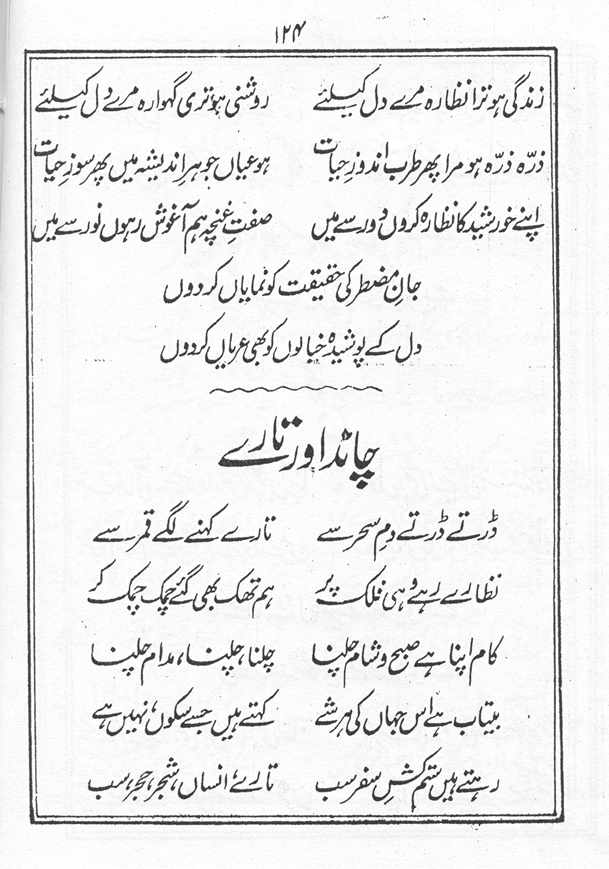 ۱۲۴
زندگی ہو ترا نظارہ مرے دل کیلئے روشنی ہو تری گہوارہ مرے دل کیلئے
ذرّہ ذرّہ ہو مرا پھر طرب اندوزِ حیات ہو عیاں جوہرِ اندیشہ میں پھر سوزِ حیات
اپنے خورشید کا نظارہ کروں دور سے میں صفتِ غنچہ ہم آغوش رہوں نور سے میں
جانِ مضطر کی حقیقت کو نمایاں کردوں
دل کے پوشیدہ خیالوں کو بھی عریاں کردوں
چاند اور تارے
ڈرتے ڈرتے دمِ سحر سے تارے کہنے لگے قمر سے
نظارے رہے وہی فلک پر ہم تھک بھی گئے چمک چمک کر
کام اپنا ہے صبح و شام چلنا چلنا، چلنا، مدام چلنا
بیتاب ہے اس جہاں کی ہر شے کہتے ہیں جسے سکوں، نہیں ہے
رہتے ہیں ستم کشِ سفر سب تارے، انساں، شجر، حجر، سب